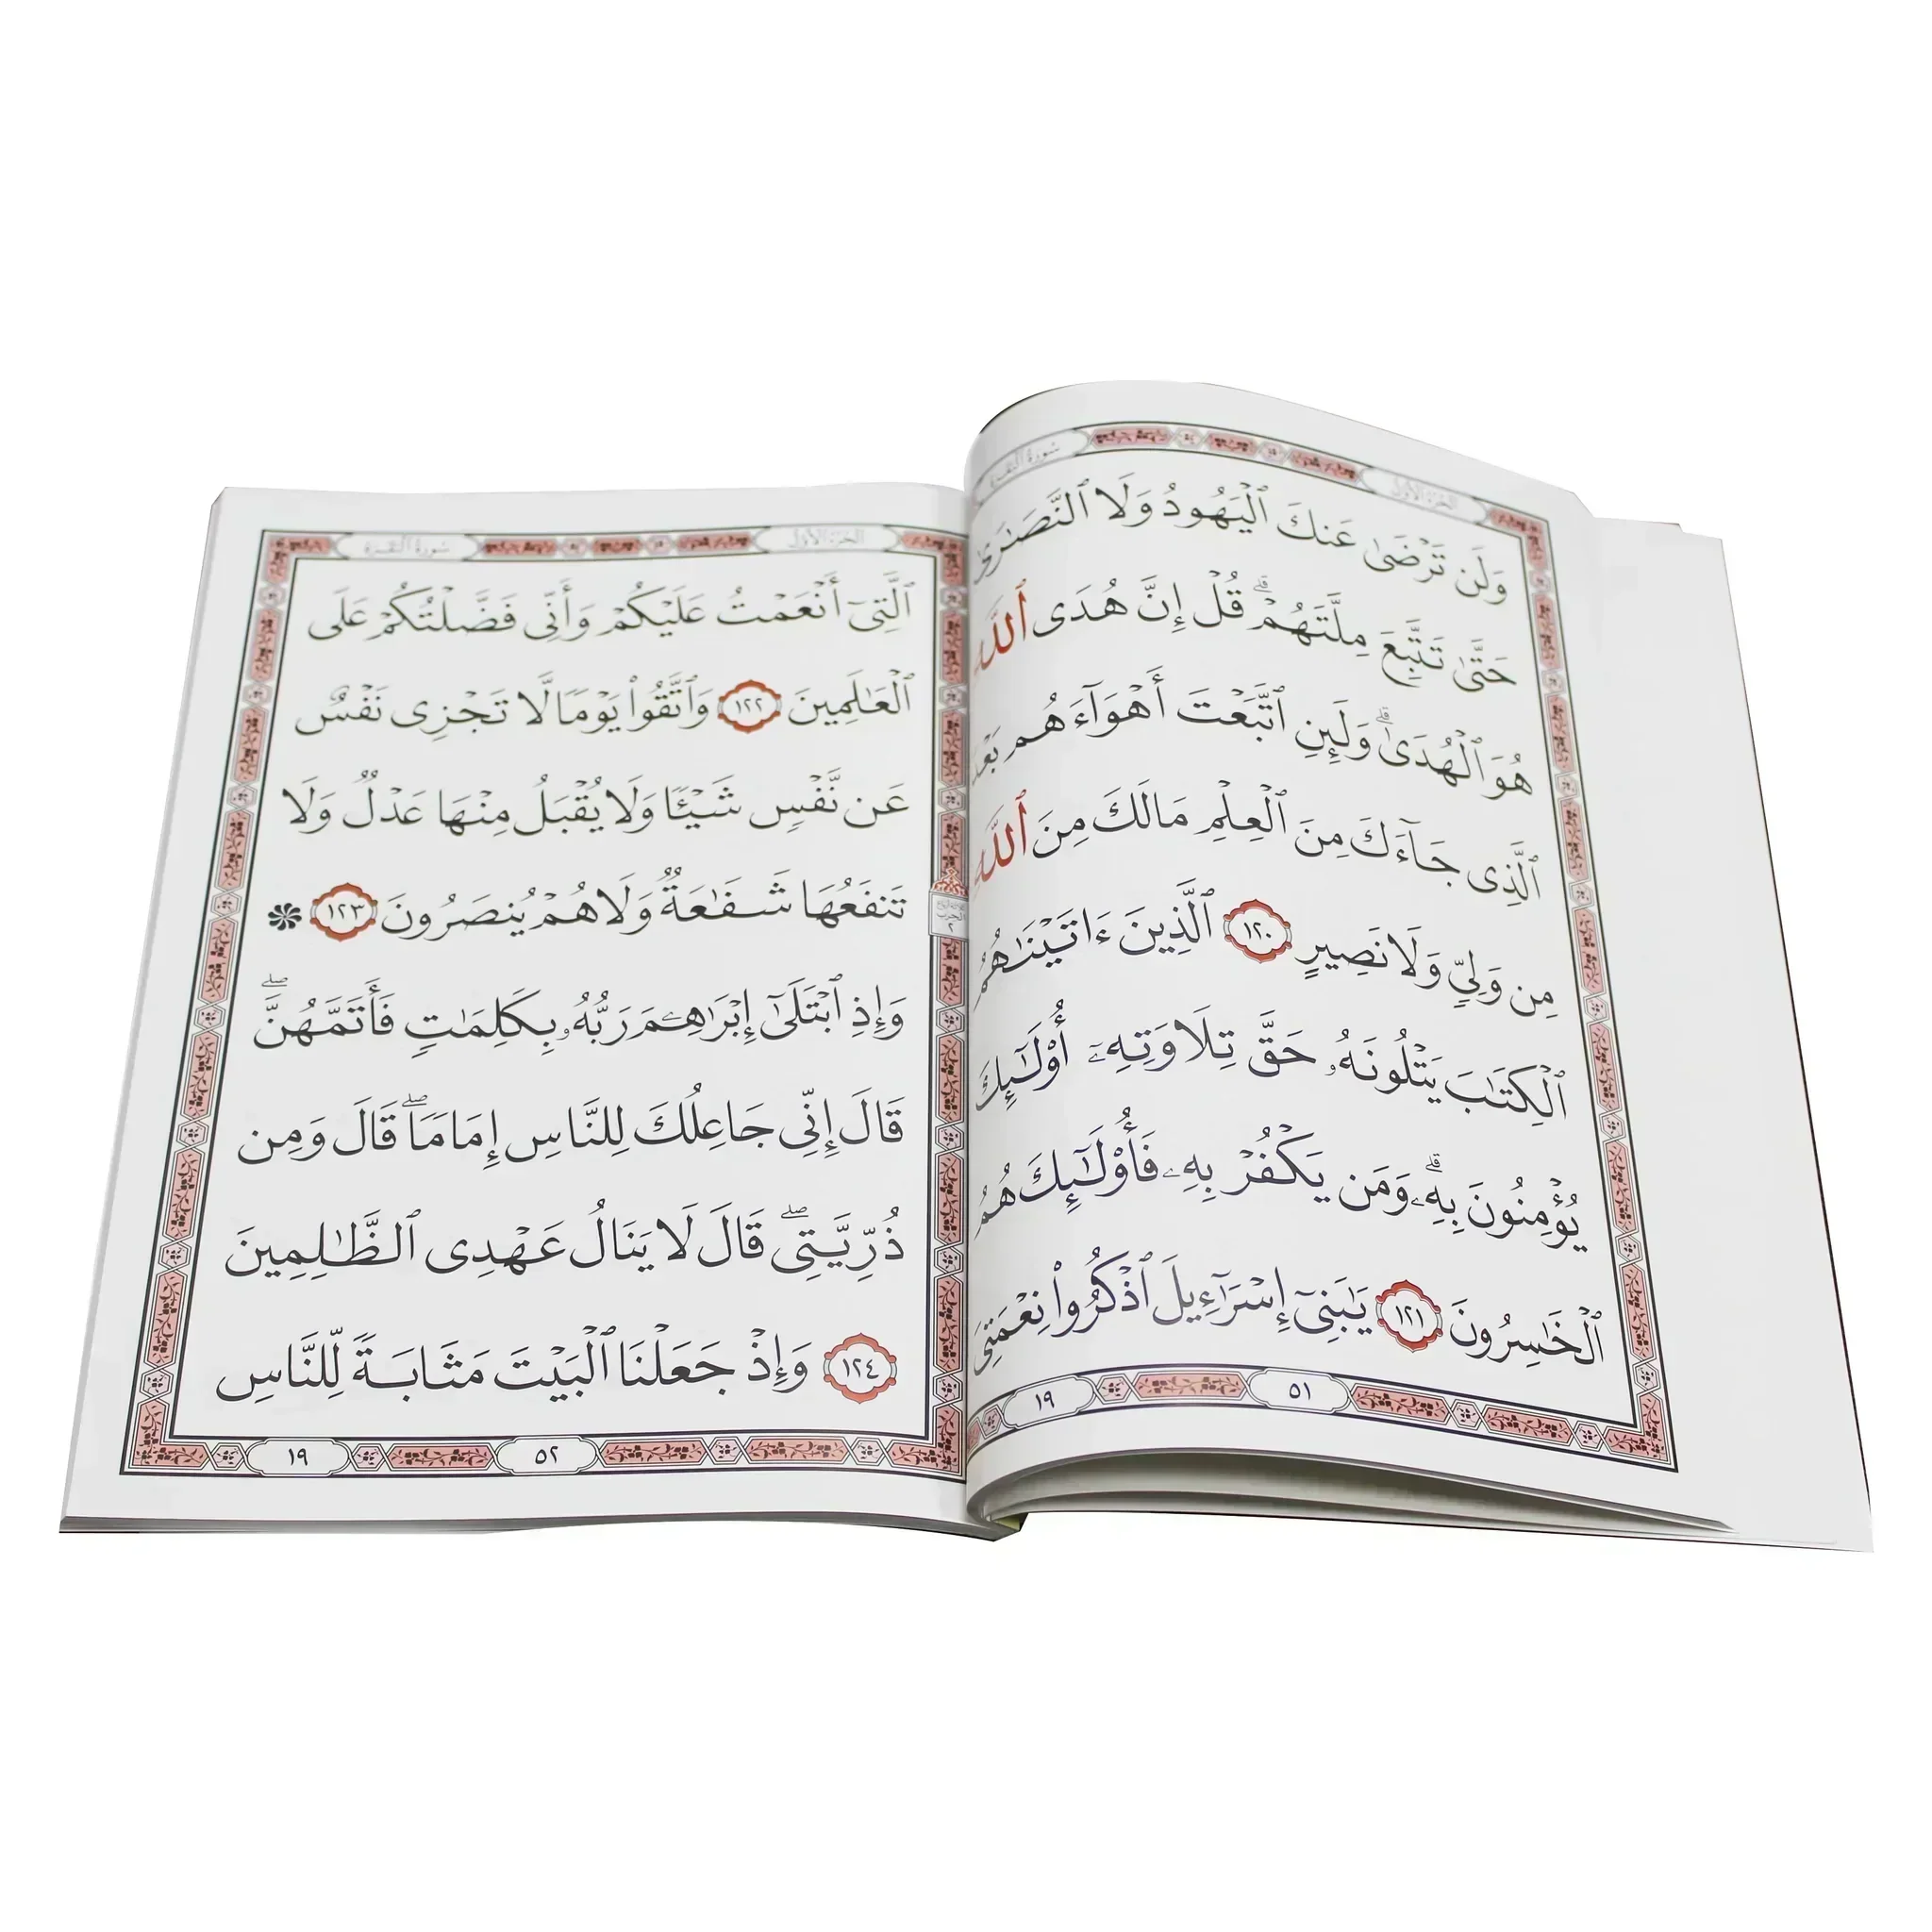 الجزء الأول
سورة البقرة
وَلَن تَرۡضَىٰ عَنكَ ٱلۡيَهُودُ وَلَا ٱلنَّصَٰرَىٰ
حَتَّىٰ تَتَّبِعَ مِلَّتَهُمۡۗ قُلۡ إِنَّ هُدَى ٱللَّهِ
هُوَ ٱلۡهُدَىٰۗ وَلَئِنِ ٱتَّبَعۡتَ أَهۡوَآءَهُم بَعۡدَ
ٱلَّذِى جَآءَكَ مِنَ ٱلۡعِلۡمِ مَالَكَ مِنَ ٱللَّهِ
مِن وَلِىٍّ وَلَا نَصِيرٍ ١٢٠ ٱلَّذِينَ ءَاتَيۡنَٰهُمُ
ٱلۡكِتَٰبَ يَتۡلُونَهُۥ حَقَّ تِلَاوَتِهِۦٓ أُوْلَٰٓئِكَ
يُؤۡمِنُونَ بِهِۦۗ وَمَن يَكۡفُرۡ بِهِۦ فَأُوْلَٰٓئِكَ هُمُ
ٱلۡخَٰسِرُونَ ١٢١ يَٰبَنِىٓ إِسۡرَٰٓءِيلَ ٱذۡكُرُواْ نِعۡمَتِىَ
٥١
١٩
الجزء الأول
سورة البقرة
ٱلَّتِىٓ أَنۡعَمۡتُ عَلَيۡكُمۡ وَأَنِّى فَضَّلۡتُكُمۡ عَلَى
ٱلۡعَٰلَمِينَ ١٢٢ وَٱتَّقُواْ يَوۡمًا لَّا تَجۡزِى نَفۡسٌ
عَن نَّفۡسٍ شَيۡـًٔا وَلَا يُقۡبَلُ مِنۡهَا عَدۡلٌ وَلَا
تَنفَعُهَا شَفَٰعَةٌ وَلَا هُمۡ يُنصَرُونَ ١٢٣ ۞
وَإِذِ ٱبۡتَلَىٰٓ إِبۡرَٰهِـۧمَ رَبُّهُۥ بِكَلِمَٰتٍ فَأَتَمَّهُنَّۖ
قَالَ إِنِّى جَاعِلُكَ لِلنَّاسِ إِمَامًاۖ قَالَ وَمِن
ذُرِّيَّتِىۖ قَالَ لَا يَنَالُ عَهۡدِى ٱلظَّٰلِمِينَ
١٢٤ وَإِذۡ جَعَلۡنَا ٱلۡبَيۡتَ مَثَابَةً لِّلنَّاسِ
٥٢
١٩